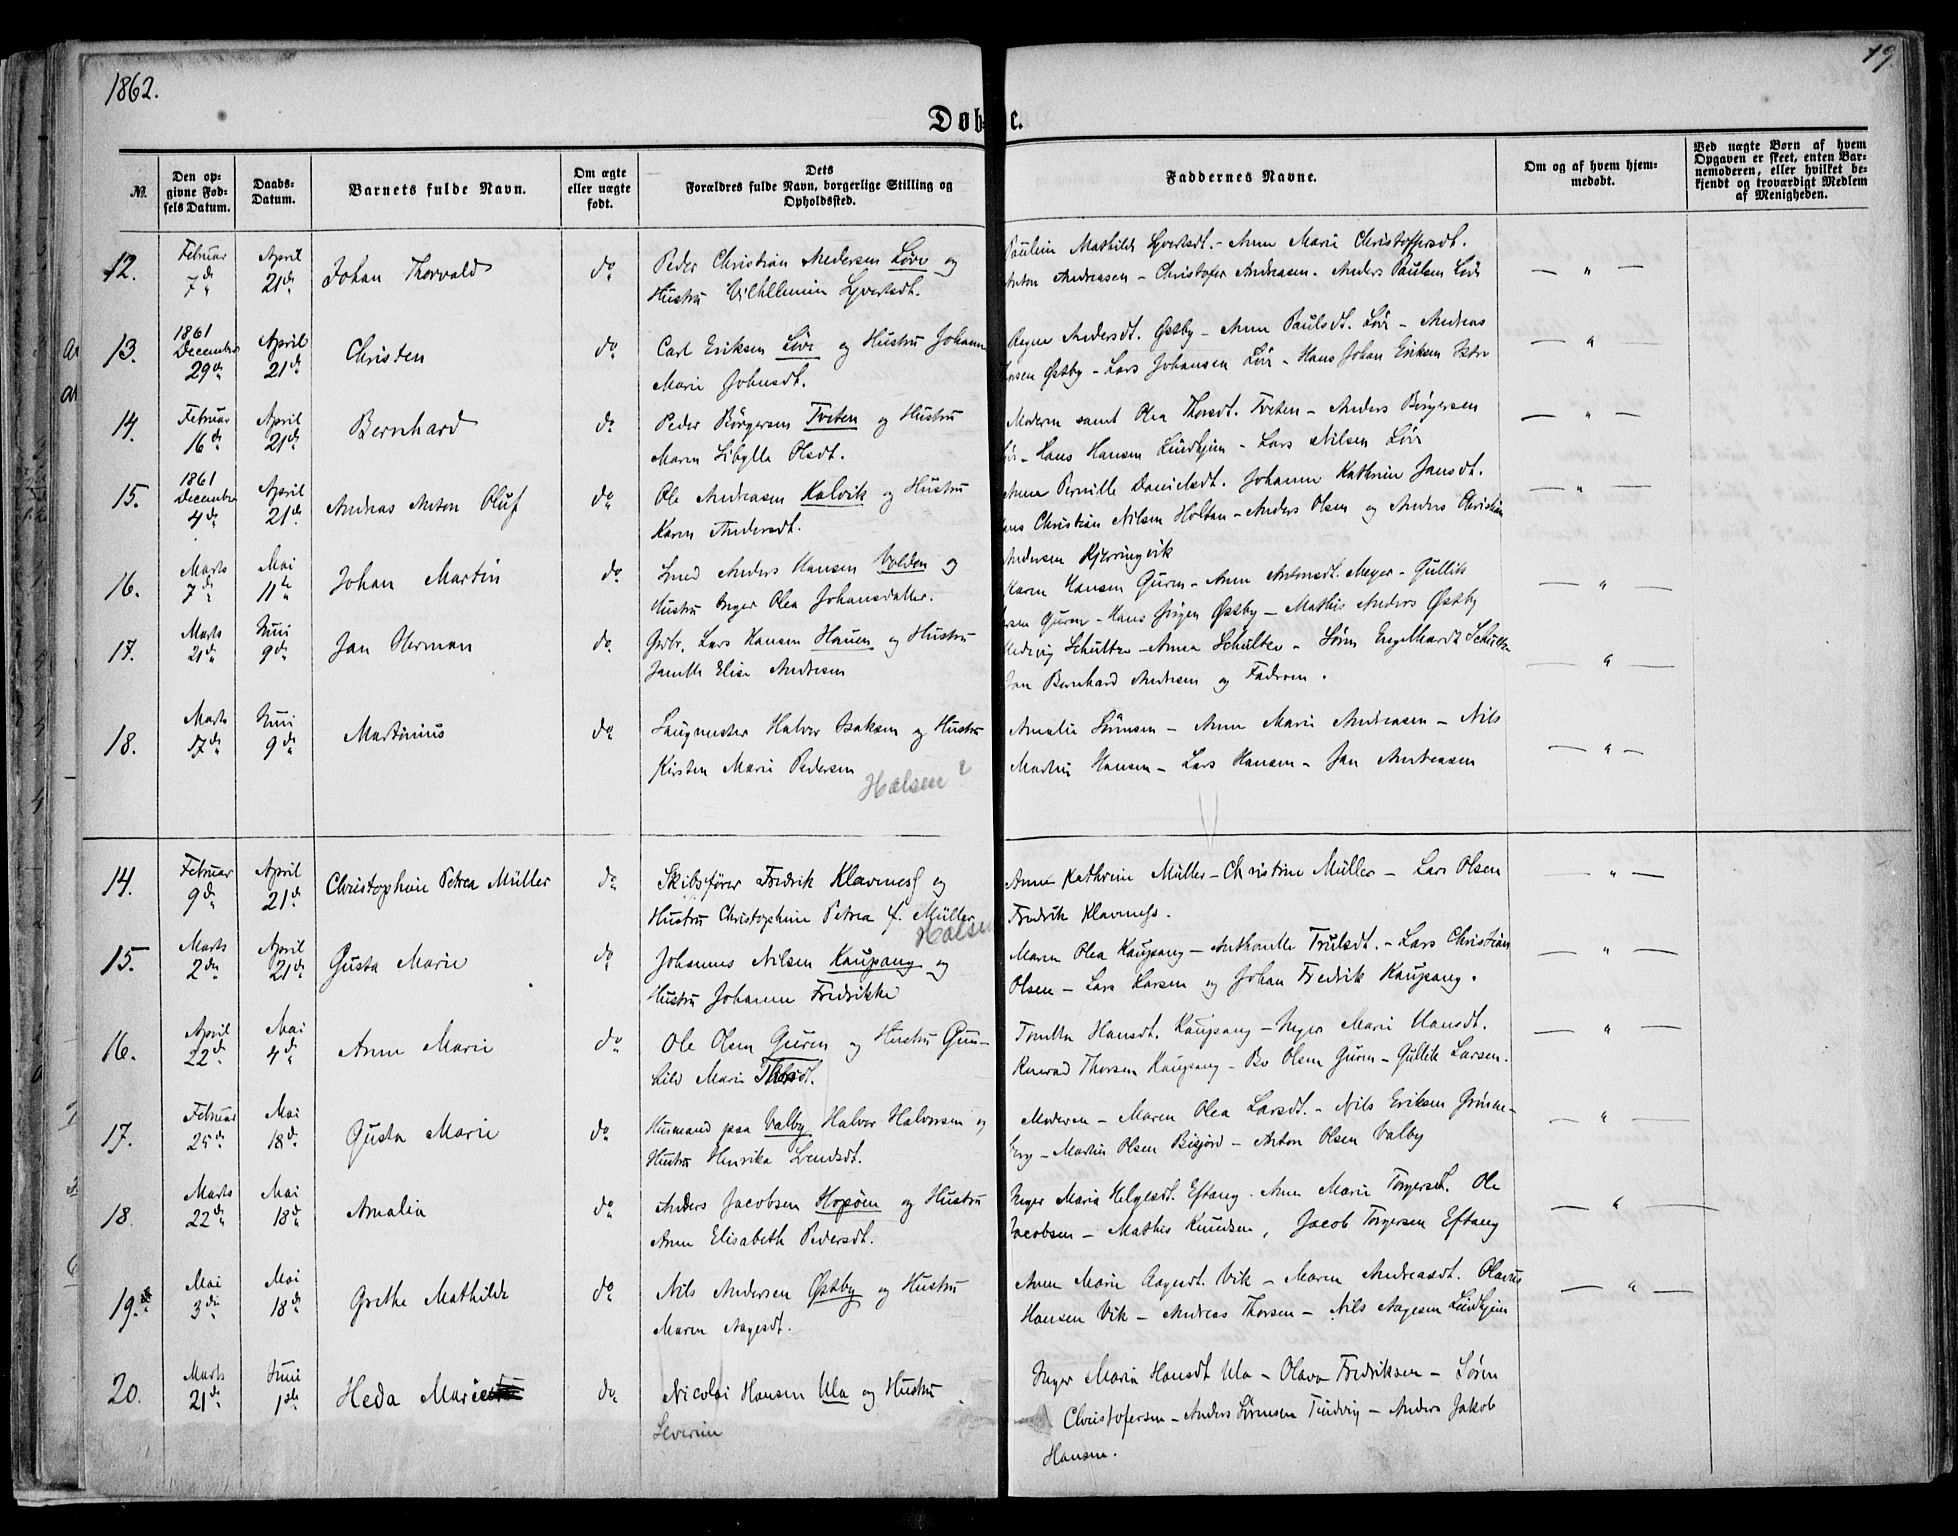 1862.
19.
Døbte.
No.
Den opgivne Fødsels Datum.
Daabs-Datum.
Barnets fulde Navn.
Om ægte eller uægte født.
Dets Forældres fulde Navn, borgerlige Stilling og Opholdssted.
Faddernes Navne.
Om og af hvem hjemmedøbt.
Ved uægte Børn af hvem Opgaven er skeet, enten Barnemoderen, eller hvilket bekjendt og troværdigt Medlem af Menigheden.
12. Februar 7de April 21de Johan Thorvald do Peder Christian Andersen Løve og Anne Marie Christoffersdt.
Hustru Andreasen - Christofer Andreasen. Anders Paulsen Løve — " —
13. 1861 December 29de April 21de Christen do Carl Eriksen Løve og Hustru Johanne Andersdt. Østby - Anne Paulsdt. Løve - Andreas
Marie Johnsdt. Østby - Lars Johansen Løve - Hans Johan Eriksen — " —
14. Februar 16de April 21de Bernhard do Peder Börgersen Tveten og Hustru Moderen samt Olea Thorsdt. Tveten - Anders Börgersen
Maren Sibylle Olsdt. Hans Hansen Lindhjem - Lars Nilsen Løve — " —
15. 1861 December 4de April 21de Andreas Anton Oluf do Ole Andreasen Kalvik og Hustru Anne Pernille Danielsdt. Johanne Kathrine Jansdt.
Karen Andersdt. Christian Nilsen Holtan - Anders Olsen og Anders Christian
Andersen Kjerringvik — " —
16. Marts 7de Mai 11te Johan Martin do Smed Anders Hansen Volden og Karen Hansen Guren - Anne Antonsdt. Meyer - Gullik
Hustru Inger Olea Johansdatter. Guren - Hans Jørgen Østby - Mathis Anders Østby — " —
17. Marts 21de Juni 9de Jan Herman do Grdbr. Lars Hansen Hauen og Hustru Hedevig Schulter - Anna Schulter - Søren Engelhardt
Elise Andresen Jan Bernhard Andresen og Faderen. — " —
18. Marts 17de Juni 9de Martinius do Laugmester Halvor Isaksen og Hustru Amalia Sörensen - Anne Marie Andreasen - Nils
Kirsten Marie Pedersen Martin Hansen - Lars Hansen - Jan Andreasen — " —
Halsen ?
14. Februar 9de April 21de Christophine Petrea Müller do Skibsfører Fredrik Klavness og Anne Kathrine Müller - Christine Müller - Lars Olsen
Hustru Christophine Petrea f. Müller Fredrik Klavness. — " —
Halsen
15. Marts 2den April 21de Gusta Marie do Johannes Nilsen Kaupang og Maren Olea Kaupang - Anthonette Trulsdt. - Lars Christian
Hustru Johanne Fredrikke Olsen - Lars Larsen og Johan Fredrik Kaupang. — " —
16. April 22de Mai 4de Anne Marie do Ole Olsen Guren og Hustru Gun-
hild Marie Hansdt. Kaupang - Inger Marie Hansdt.
Konrad Thorsen Kaupang - Bo Olsen Guren - Gullik Larsen. — " —
17. Februar 25de Mai 18de Gusta Marie do Husmand paa Valby Halvor Halvorsen og Moderen - Maren Olea Larsdt. - Nils Eriksen
Hustru Henrika - Martin Olsen Bisjord - Anton Olsen Valby — " —
18. Marts 22de Mai 18de Amalia do Anders Jacobsen Hopsøen og Hustru Inger Maria Helgesdt. Eftang. Anne Marie Torgersdt. Ole
Anne Elisabeth Pedersdt. Jacobsen - Mathis Knudsen, Jacob Torgersen Eftang — " —
19. Mai 3die Mai 18de Grethe Mathilde do Nils Andersen Østby og Hustru Anne Marie Aagesdt. Vik - Maren Andreasdt. Olavus
Maren Aagesdt. Hansen Vik - Andreas Thorsen - Nils Aagesen Lindhjem — " —
20. Marts 21de Juni 1ste Heda Marie do Nicolai Hansen Ula og Hustru Inger Maria Hansdt Ula - Olava Fredriksen - Søren
Severine Christofersen - Anders Sörensen Tindvig - Anders Jakob
Hansen.